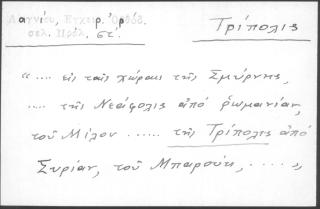 Λαγνίου, Εγχειρ. Ὀρθόδ.
σελ. Πρόλ. στ΄.
Τρίπολις
“.... εις ταις χώραις τῆς Σμύρνης,
..... τῆς Νεάπολις ἀπό ῥωμανίαν,
τοῦ Μίλου ...... τῆς Τρίπολις ἀπό
Συρίαν, τοῦ Μπαρούτι, . . . . „